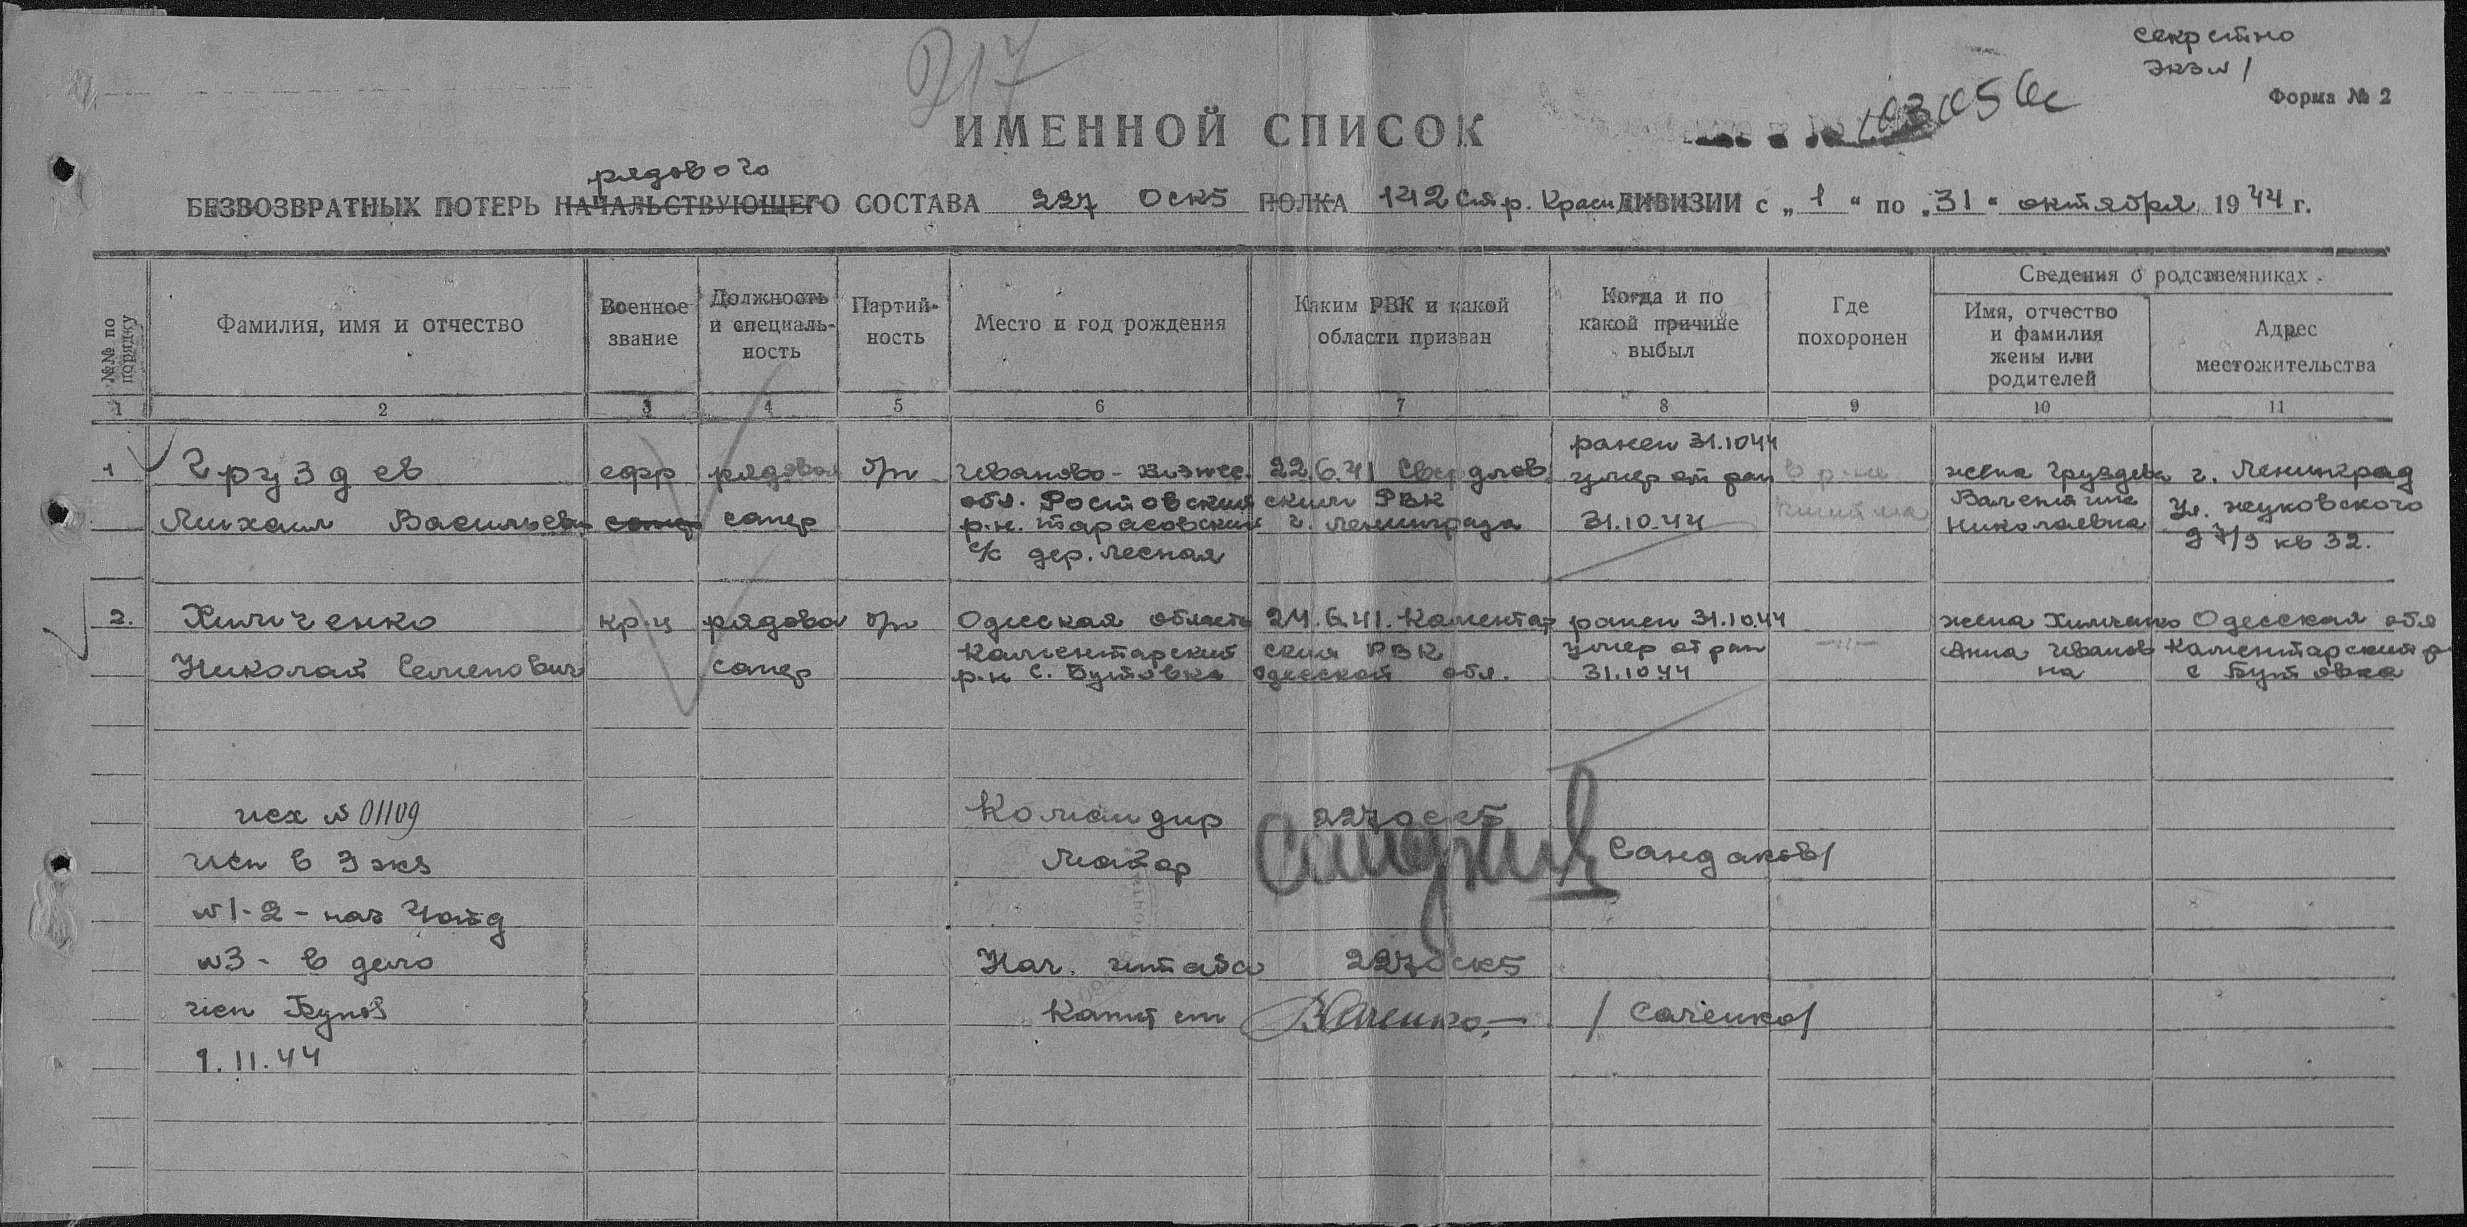 секретно
экз №1
Форма № 2
717
103056с
ИМЕННОЙ СПИСОК
рядового
БЕЗВОЗВРАТНЫХ ПОТЕРЬ НАЧАЛЬСТВУЮЩЕГО СОСТАВА 227 ОСКБ ПОЛКА 142 Стр. Красн ДИВИЗИИ с „1“ по „31“ октября 1944 г.
№№ по порядку
Фамилия, имя и отчество
Военное звание
Должность и специаль-ность
Партий-ность
Место и год рождения
Каким РВК и какой области призван
Когда и по какой причине выбыл
Где похоронен
Сведения о родственниках
Имя, отчество и фамилия жены или родителей
Адрес местожительства
1 2 3 4 5 6 7 8 9 10 11
ранен 31.10.44
1 Груздев ефр рядовой б/п Иваново-Вознес. 22.6.41 Свердлов умер от ран в р-не жена Груздева г. Ленинград
обл. Ростовский ским РВК Валентина
Михаил Васильевич сапер сапер р-н. Тарасовский г. Ленинграда 31.10.44 Николаевна Ул. Жуковского
с/с дер. Лесная 27/9 кв 32.
2. Химченко кр-ц рядовой б/п Одесская область 24.6.41. Каментар ранен 31.10.44 жена Химченко Одесская обл
Каментарский ским РВК умер от ран —"— Анна Иванов Каментарский р
Николай Семенович сапер р-н с. Бутовка Одесской обл. 31.10.44 на с Бутовка
исх № 01109 Командир 227 оскб
исп в 3 экз Майор Сандаков/
№1-2 - нач
№3 - в дело Нач. штаба 227 оскб
исп Капитан / Саченко/
1.11.44